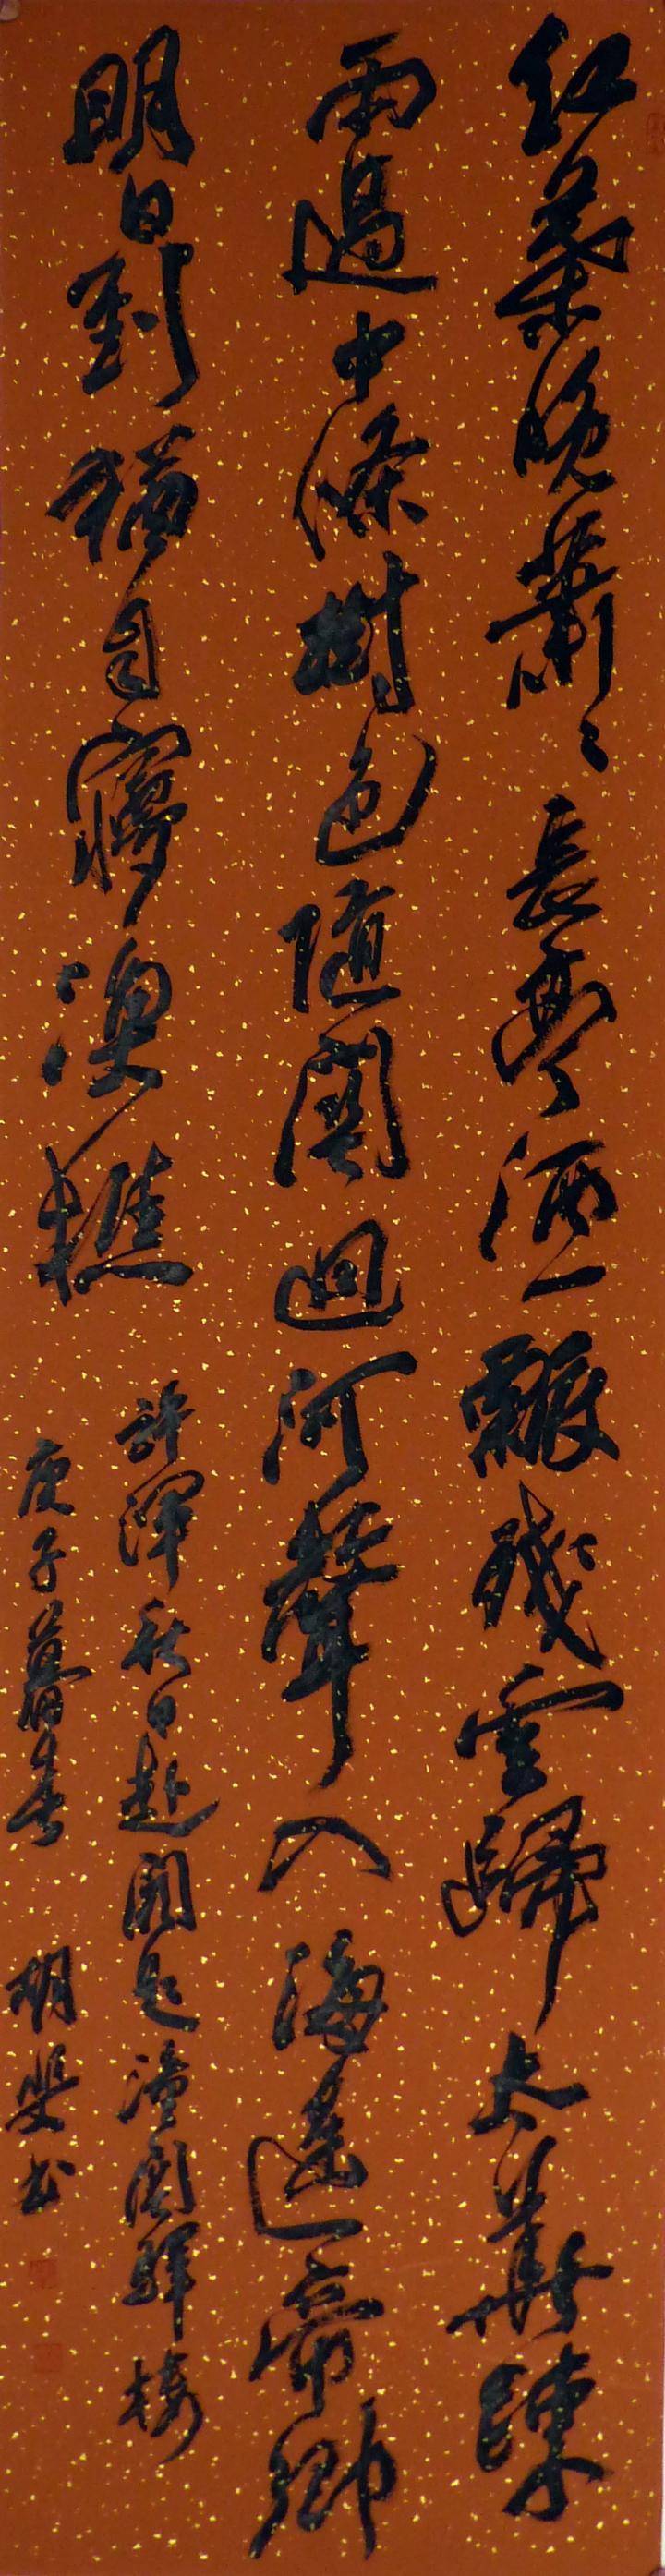 紅葉晚蕭〻長亭酒一瓢殘雲歸太華疎
雨過中條樹色隨關迥河聲入海遥帝鄉
明日到猶自夢漁樵
許渾秋日赴闕題潼關驛樓
庚子暮春 書